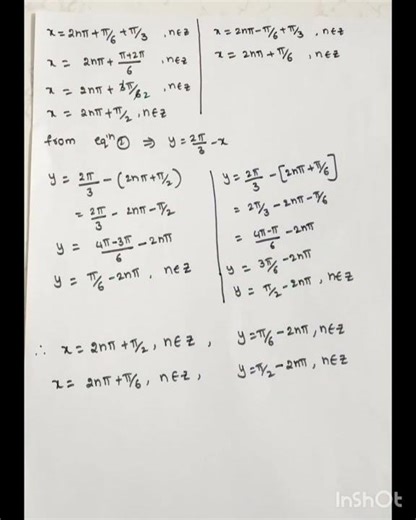 x = 2nπ + π/6 + π/3 , n∈z
x = 2nπ + π+2π/6 , n∈z
x = 2nπ + 3π/6 2 , n∈z
x = 2nπ + π/2 , n∈z
x = 2nπ - π/6 + π/3 , n∈z
x = 2nπ + π/6 , n∈z
from eqⁿ ② ⇒ y = 2π/3 - x
y = 2π/3 - (2nπ + π/2)
= 2π/3 - 2nπ - π/2
y = 4π-3π/6 - 2nπ
y = π/6 - 2nπ , n∈z
y = 2π/3 - [2nπ + π/6]
= 2π/3 - 2nπ - π/6
= 4π-π/6 - 2nπ
y = 3π/6 - 2nπ
y = π/2 - 2nπ , n∈z
∴ x = 2nπ + π/2 , n∈z , y = π/6 - 2nπ , n∈z
x = 2nπ + π/6 , n∈z , y = π/2 - 2nπ , n∈z
InShOt